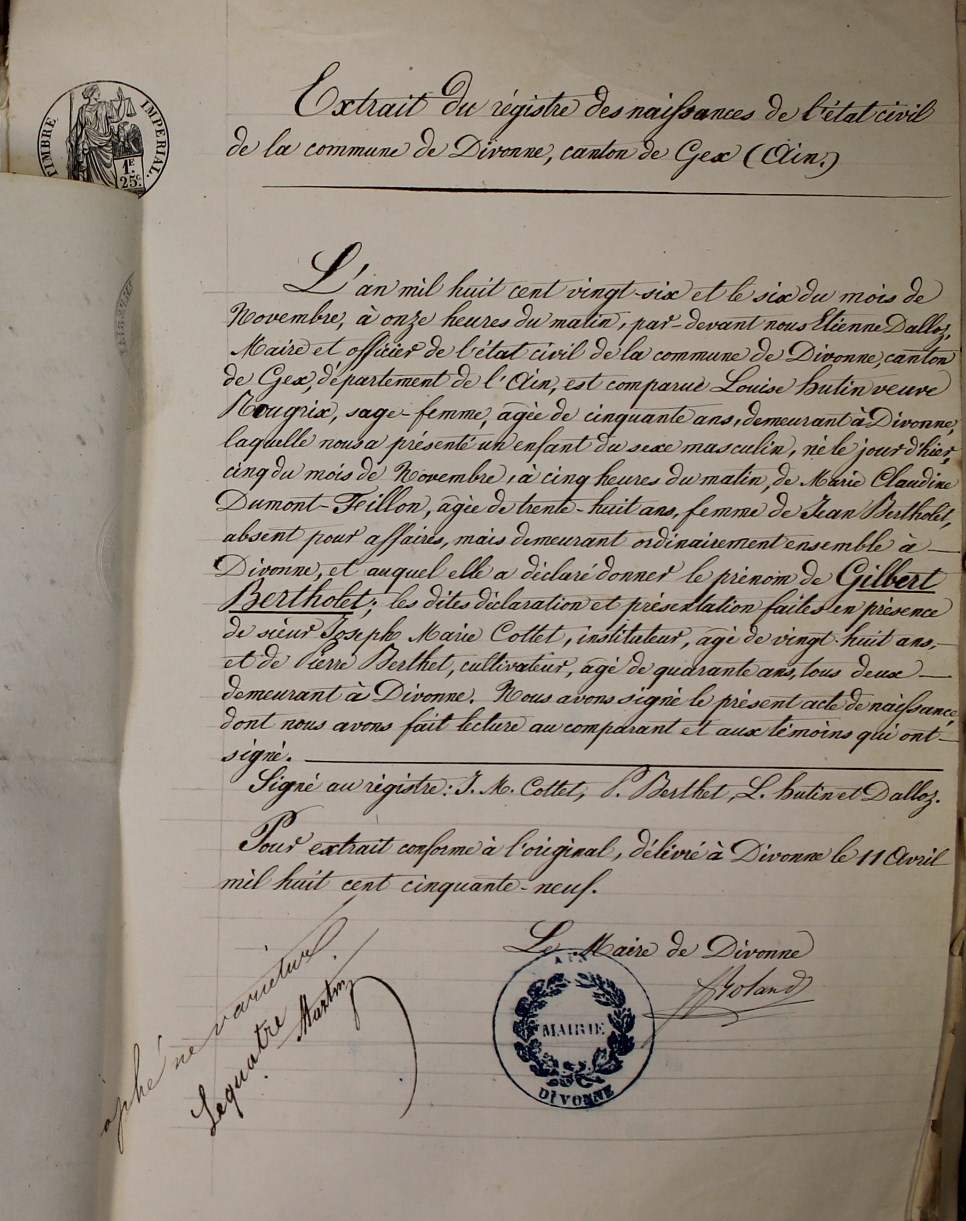 TIMBRE IMPERIAL.
1F.
25C.
Extrait du régistre des naissances de l'état civil
de la commune de Divonne, canton de Gex (Ain.)
L'an mil huit cent vingt-six et le six du mois de
Novembre, à onze heures du matin, par-devant nous Etienne Dalloz,
Maire et officier de l'état civil de la commune de Divonne, canton
de Gex, département de l'Ain, est comparue Louise hutin veuve
Rougrix, sage-femme, agée de cinquante ans, demeurant à Divonne,
laquelle nous a présenté un enfant du sexe masculin, né le jour d'hier,
cinq du mois de Novembre, à cinq heures du matin, de Marie Claudine
Dumont-Feillon, agée de trente-huit ans, femme de Jean Bertholet,
absent pour affaires, mais demeurant ordinairement ensemble à
Divonne, et auquel elle a déclaré donner le prénom de Gilbert
Bertholet; les dites déclaration et présentation faites en présence
de sieur Joseph Marie Cottet, instituteur, agé de vingt-huit ans,
et de Pierre Berthet, cultivateur, agé de quarante ans, tous deux
demeurant à Divonne. Nous avons signé le présent acte de naissance,
dont nous avons fait lecture au comparant et aux témoins qui ont
signé.
Signé au régistre: J. M. Cottet, P. Berthet, L. hutin et Dalloz.
Pour extrait conforme à l'original, délivré à Divonne le 11 Avril
mil huit cent cinquante-neuf.
Le Maire de Divonne
Roland
AIN
MAIRIE
DIVONNE
aphé ne varietur
Lequatre Martin